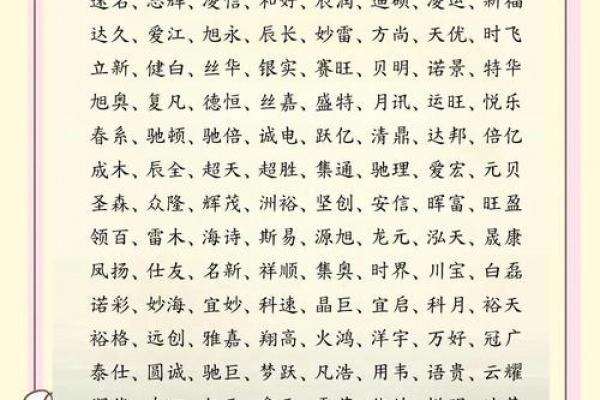 速名、志辉、凌信、和好、辰润、迪硕、凌运、新福
达久、爱江、旭永、辰长、妙雷、方尚、天优、时飞
立新、健白、丝华、银实、赛旺、贝明、诺景、特华
旭奥、复凡、德恒、丝嘉、盛特、月讯、运旺、悦乐
春系、驰顿、驰倍、诚电、跃亿、清鼎、达邦、倍亿
成木、辰全、超天、超胜、集通、驰理、爱宏、元贝
圣森、众隆、辉茂、洲裕、坚创、安信、晖富、旺盈
领百、雷木、海诗、斯易、源旭、龙元、泓天、晟康
凤扬、仕友、名新、祥顺、集奥、时界、川宝、白磊
诺彩、妙海、宜妙、科速、晶巨、宜启、科月、裕天
裕格、远创、雅嘉、翔高、火鸿、洋宇、万好、冠广
泰仕、圆诚、驰巨、梦跃、凡浩、用韦、语贵、云耀